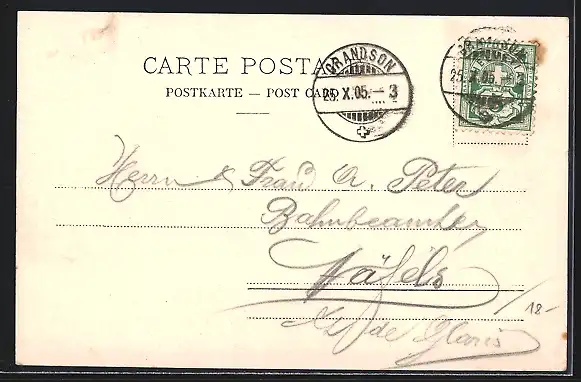 CARTE POSTALE
POSTKARTE — POST CARD
GRANDSON
25. X. 05. – 3
GRANDSON
25. X. 05.
Herrn & Frau A. Peter
Bahnbeamter
Näfels
de Glaris
18-